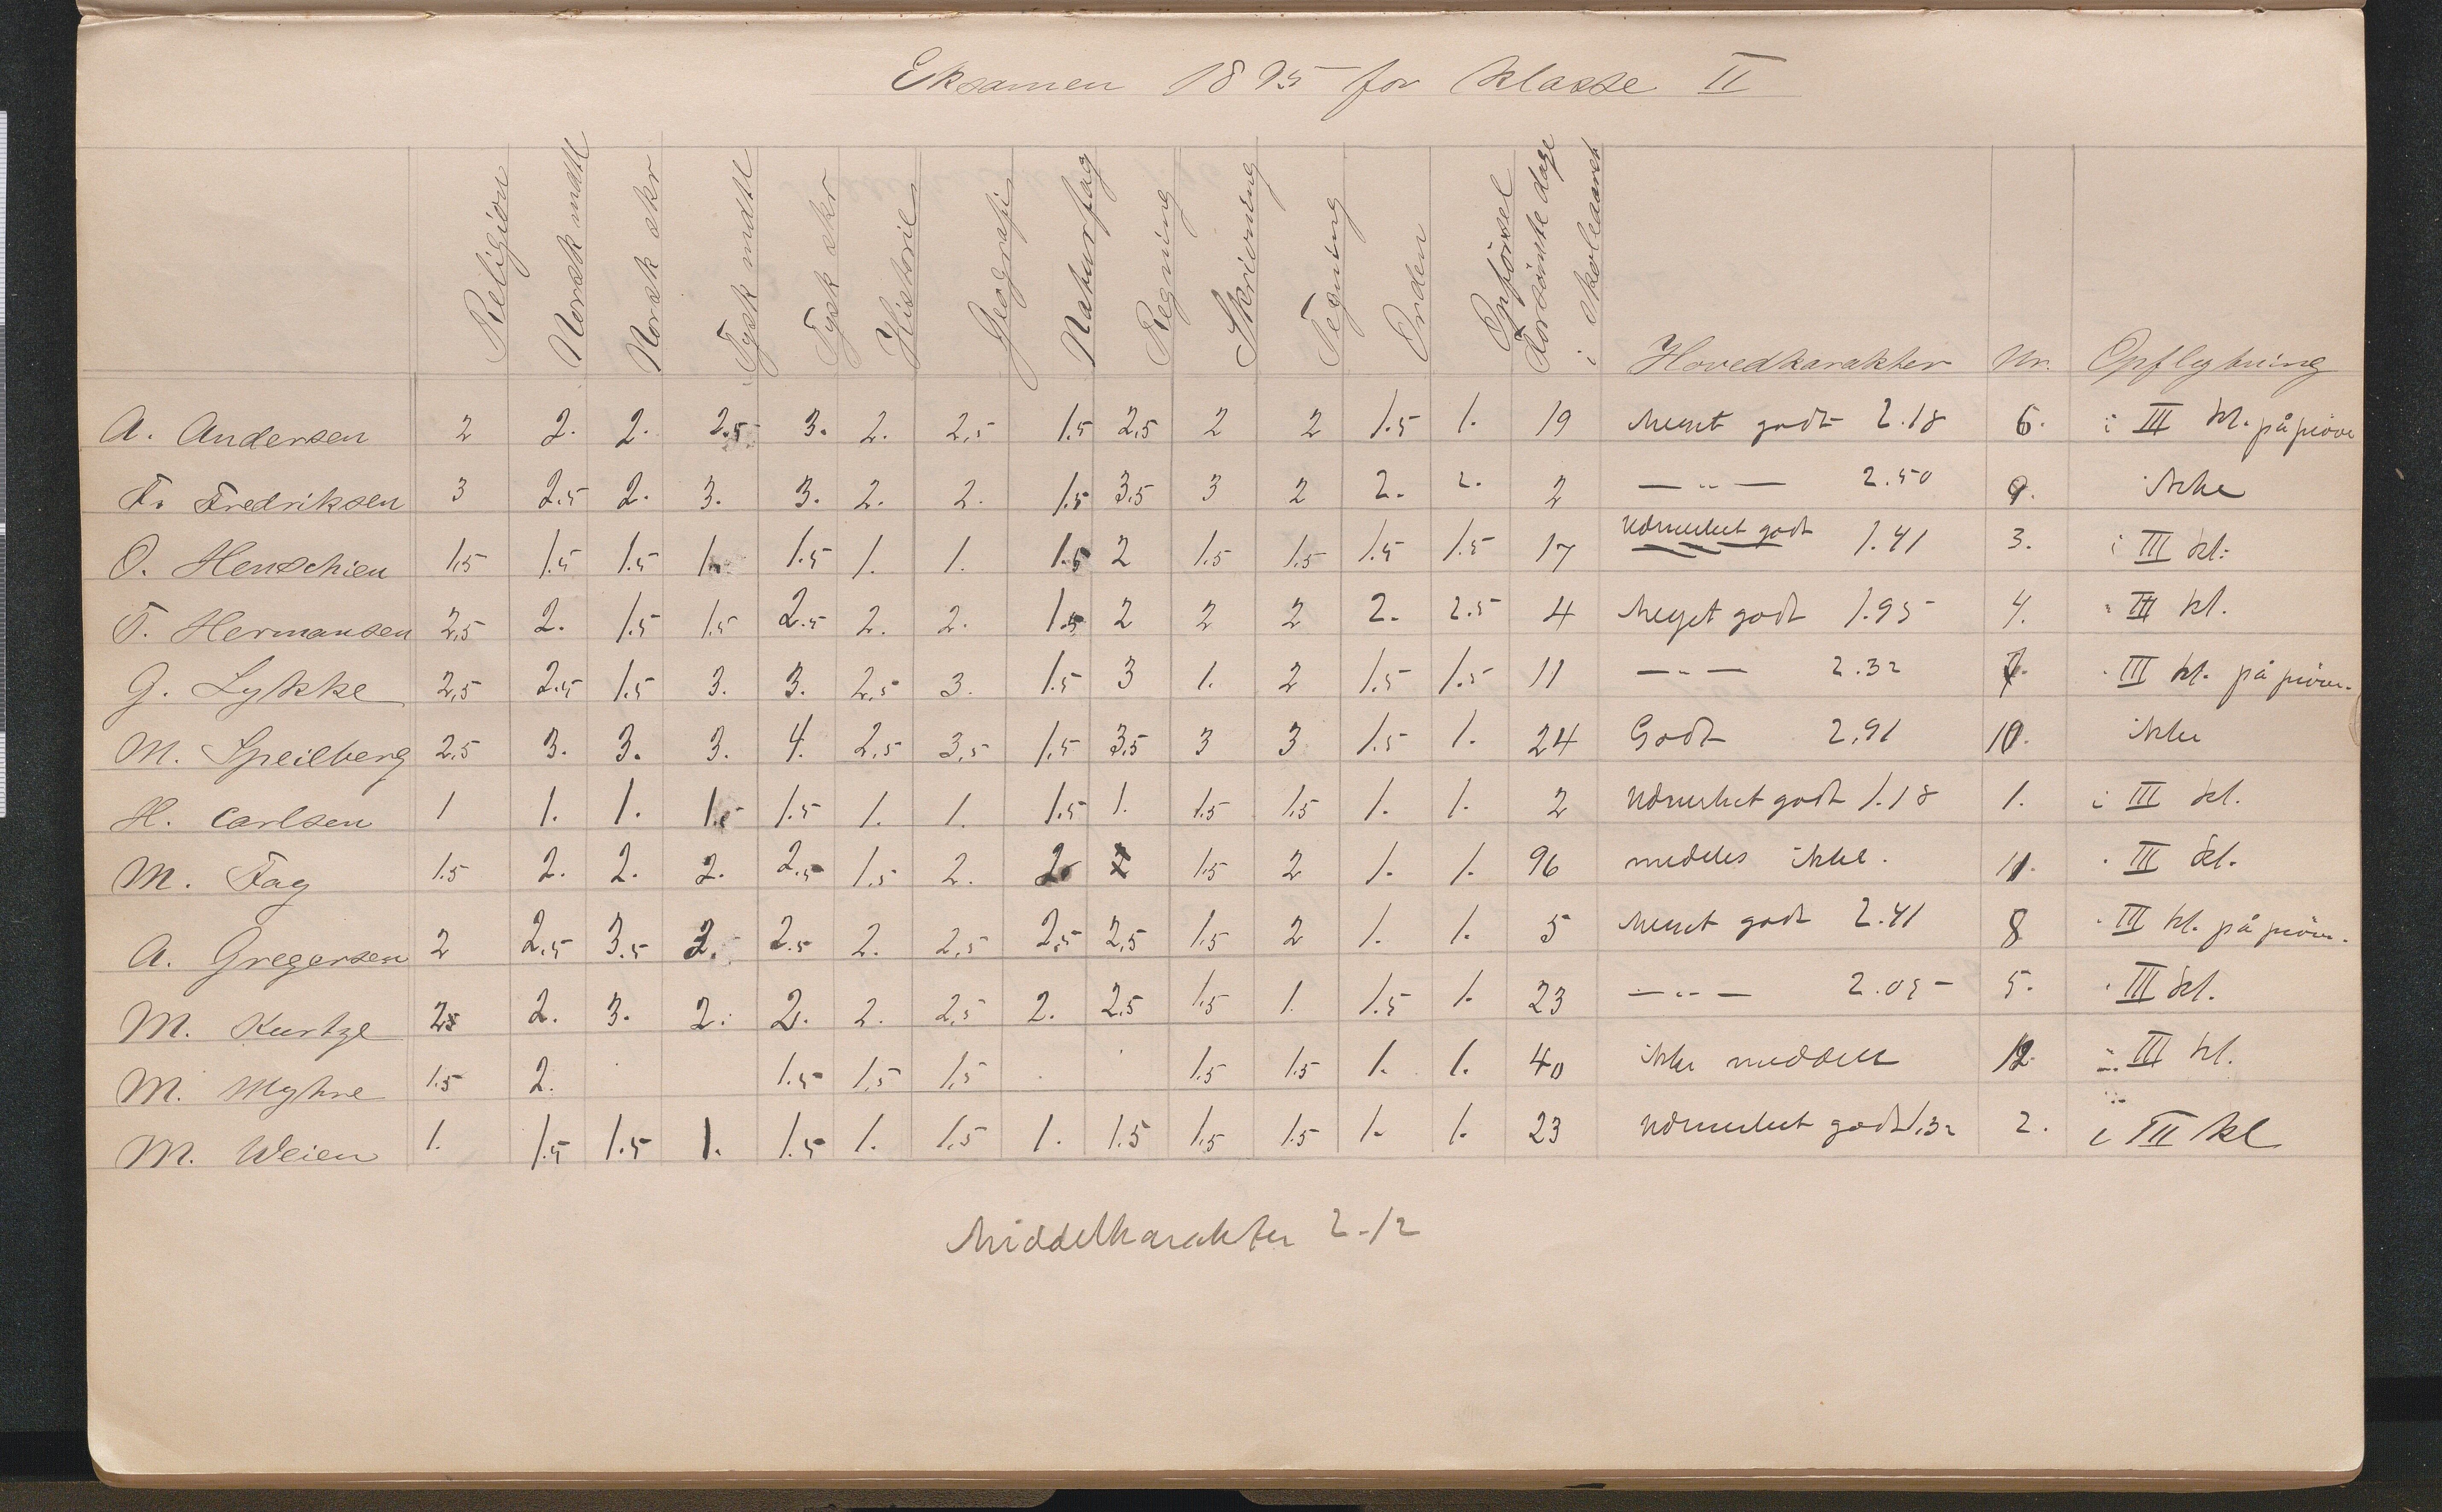 Eksamen 1895 for klasse II
Religion Norsk mdtl Norsk skr Tysk mdtl Tysk skr Historie Geografi Naturfag Regning Skrivning Tegning Orden Opførsel Forsømte dage i skoleaaret Hovedkarakter Nr. Opflytning
A. Andersen 2 2. 2. 2.5 3. 2. 2,5 1.5 2,5 2 2 1.5 1. 19 Meget godt 2.18 6. i III kl. på prøve
F. Fredriksen 3 2.5 2. 3. 3. 2. 2. 1.5 3.5 3 2 2. 2. 2 — " — 2.50 9. ikke
O. Henschien 1.5 1.5 1.5 1. 1.5 1. 1. 1.5 2 1.5 1.5 1.5 1.5 17 Udmerket godt 1.41 3. i III kl.
T. Hermansen 2,5 2. 1.5 1.5 2.5 2. 2. 1.5 2 2 2 2. 2.5 4 Meget godt 1.95 4. " III kl.
G. Lykke 2,5 2.5 1.5 3. 3. 2,5 3. 1.5 3 1. 2 1.5 1.5 11 — " — 2.32 7. " III kl. på prøve.
M. Speilberg 2,5 3. 3. 3. 4. 2,5 3,5 1.5 3.5 3 3 1.5 1. 24 Godt 2,91 10. ikke
H. Carlsen 1 1. 1. 1. 1.5 1. 1. 1.5 1. 1.5 1.5 1. 1. 2 Udmerket godt 1.18 1. i III kl.
M. Fag 1.5 2. 2. 2. 2.5 1.5 2. 2. 2 1.5 2 1. 1. 96 meddeles ikke. 11. " III kl.
A. Gregersen 2 2.5 3.5 2. 2.5 2. 2,5 2,5 2,5 1.5 2 1. 1. 5 Meget godt 2.41 8 " III kl. på prøve.
M. Kurtze 2.5 2. 3. 2. 2. 2. 2,5 2. 2,5 1.5 1 1.5 1. 23 — " — 2.05 5. " III kl.
M. Myhre 1.5 2. 1.5 1,5 1,5 1.5 1.5 1. 1. 40 ikke meddelt 12. " III kl.
M. Weien 1. 1.5 1.5 1. 1.5 1. 1,5 1. 1.5 1.5 1.5 1. 1. 23 Udmerket godt 1.32 2. i III kl
Middelkarakter 2.12